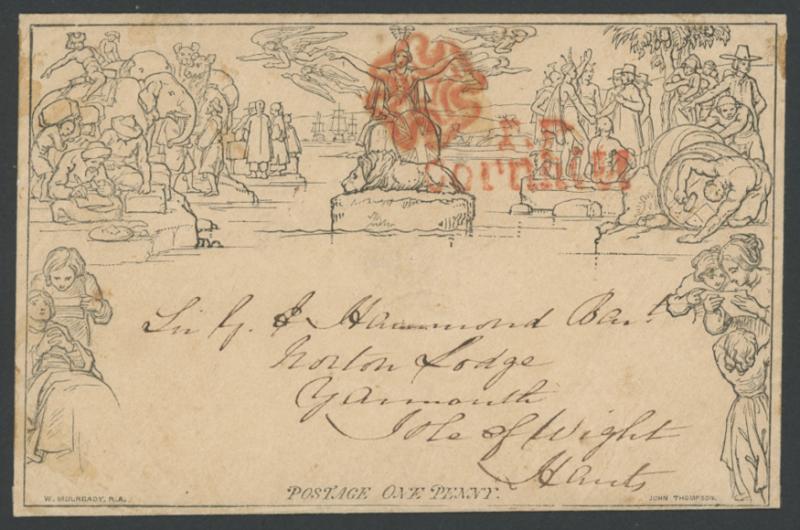 P.P
Cornhill
Sir G. E Hammond Bart
Norton Lodge
Yarmouth
Isle of Wight
Hants
POSTAGE ONE PENNY.
W. MULREADY, R.A.
JOHN THOMPSON.